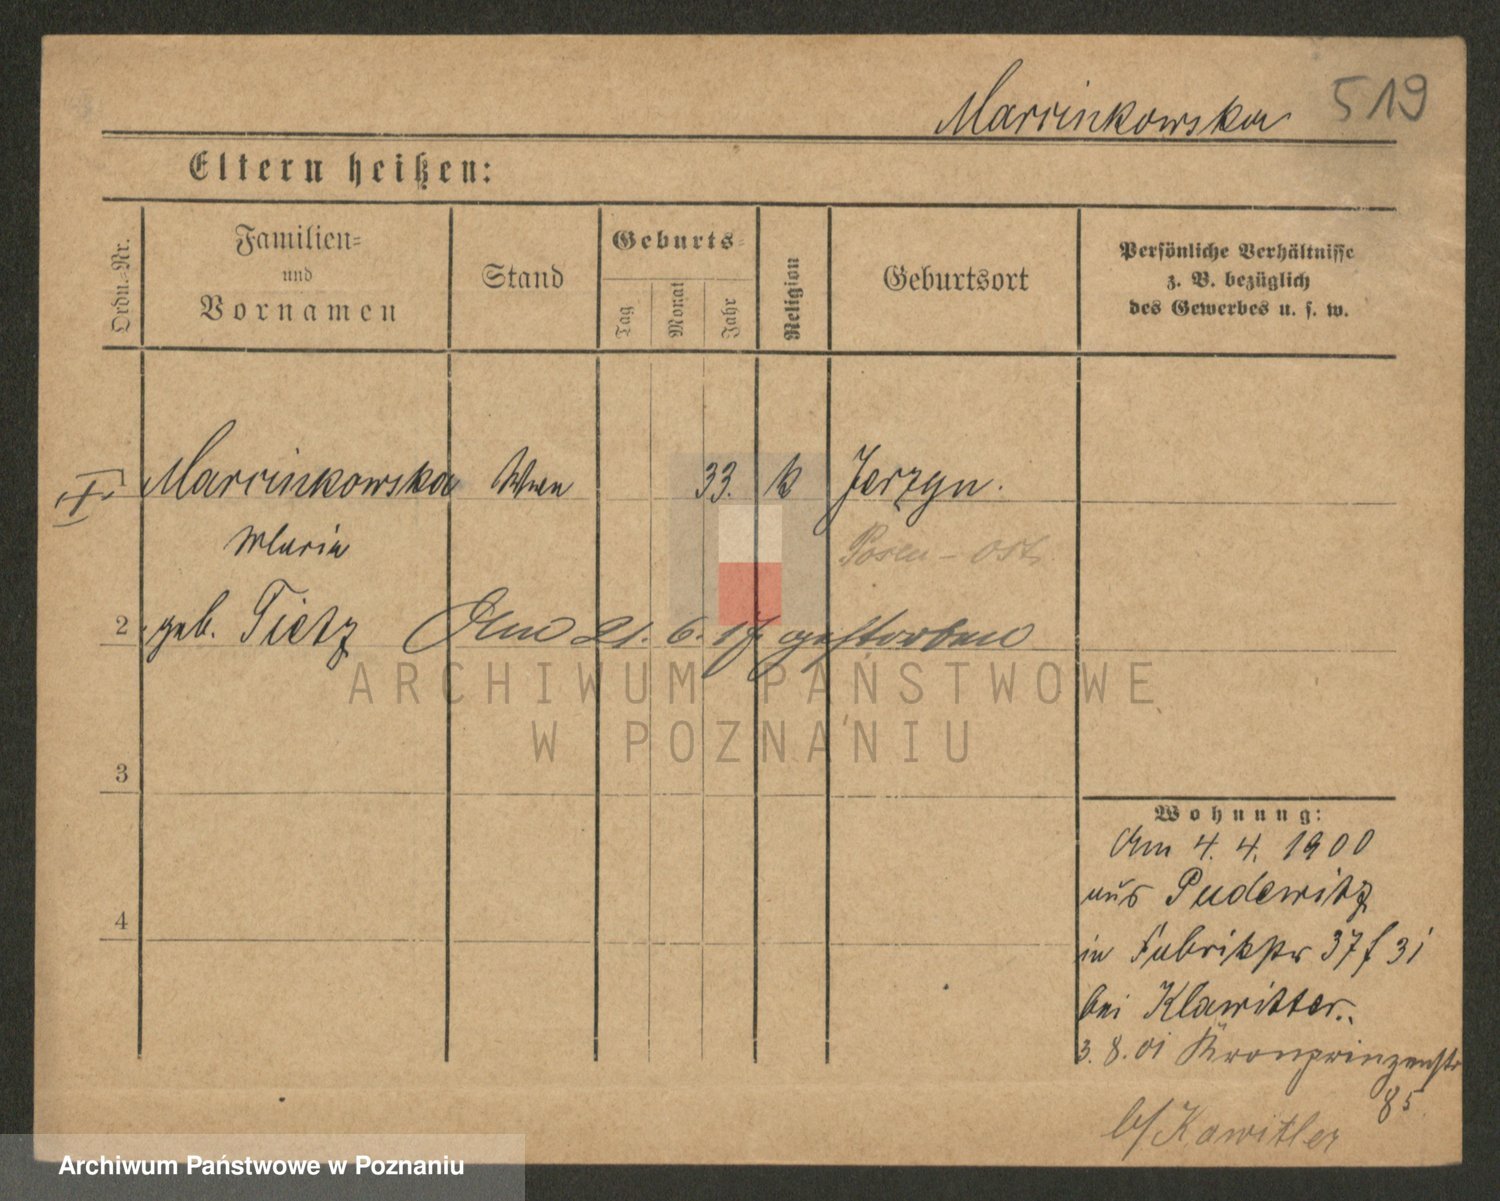 Marcinkowska 519
Eltern heißen:
Ordn.-Nr.
Familien-
und
Vornamen
Stand
Geburts-
Tag
Monat
Jahr
Religion
Geburtsort
Persönliche Verhältnisse
z. B. bezüglich
des Gewerbes u. s. w.
I. Marcinkowska Wwe 33. k Jerzyn.
Maria Posen-Ost.
2 geb. Tietz Am 21. 6. 17 gestorben
ARCHIWUM PAŃSTWOWE
W POZNANIU
3
Wohnung:
Am 4. 4. 1900
aus Pudewitz
4
in Fabrikstr 37 f 3i
bei Klawitter.
3. 8. 01 Kronprinzenstr
85
b/Kawitler
Archiwum Państwowe w Poznaniu